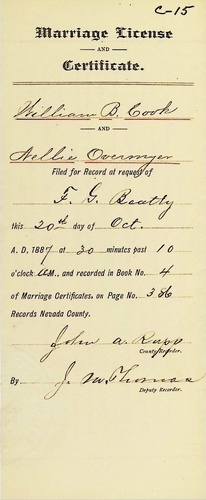 C-15
Marriage License
AND
Certificate.
William B. Cook
AND
Nellie Overmyer
Filed for Record at request of
F. G. Beatty
this 20th day of Oct.
A. D. 1887 at 30 minutes past 10
o'clock A.M., and recorded in Book No. 4
of Marriage Certificates, on Page No. 386
Records Nevada County.
John A. Rapp
County Recorder.
By J. M. Thomas
Deputy Recorder.